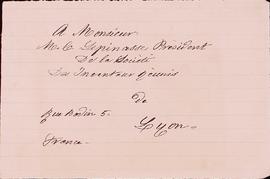 A Monsieur
M. C. Lépinasse Président
De la Société
Des Inventeur Réunis
de
Rue Bodin 5. Lyon.
France.